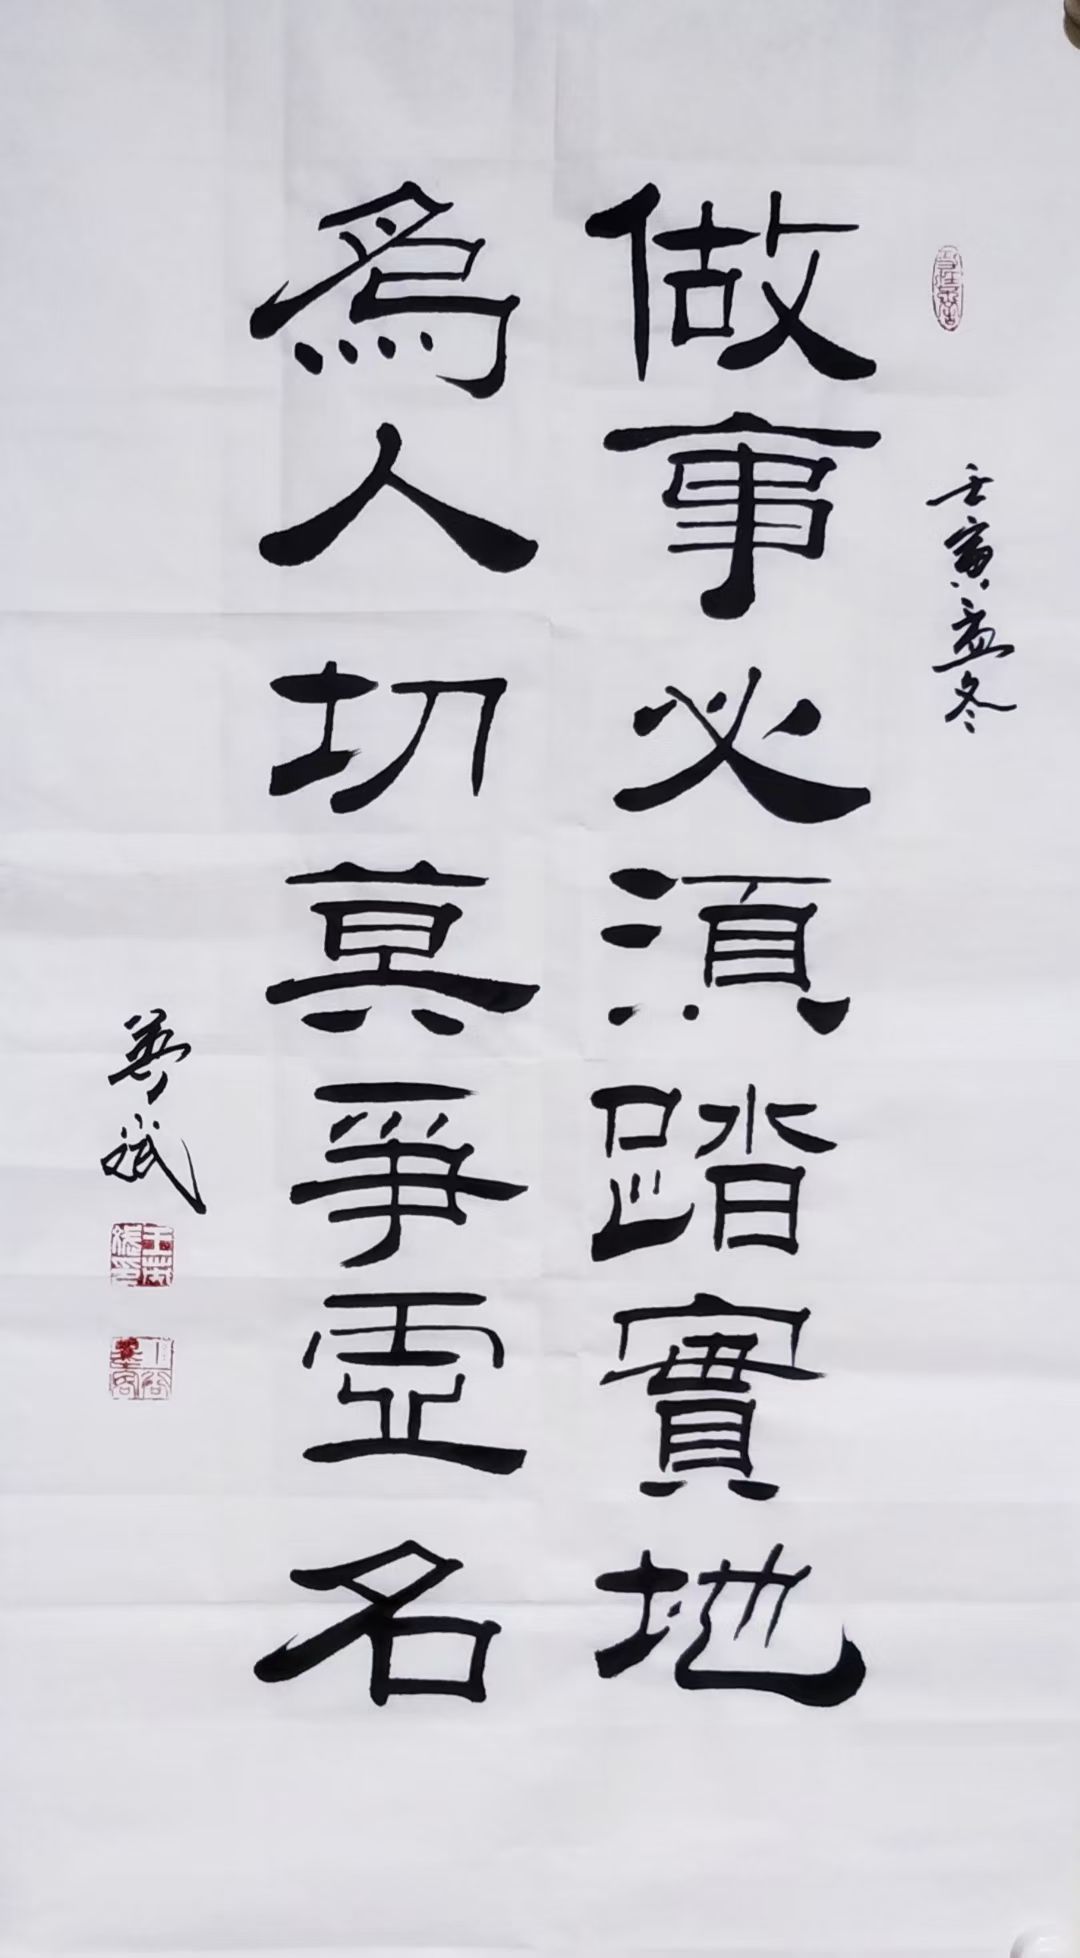 壬寅孟冬
做事必須踏實地
為人切莫爭虛名